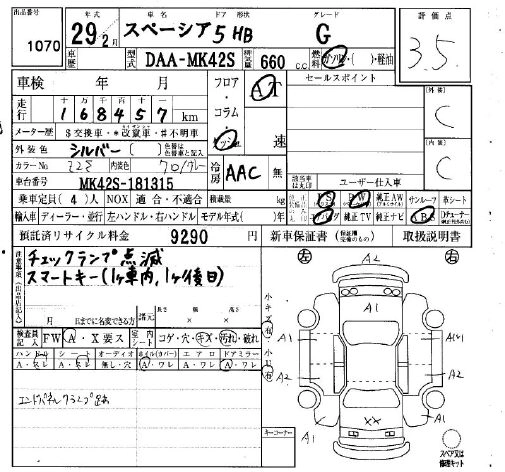 出品番号 1070
年式 29年2月
車名 スペーシア
ドア 形状 5 HB
グレード G
評価点 3.5
車歴
型式 DAA-MK42S
排気量 660 c.c.
燃料 ガソリン・( )・軽油
車検 年 月
フロア・コラム・
AT
速
セールスポイント
外装 C
内装 C
走行 十万 万 千 百 十 一
168457 km
メーター歴 $交換車・*改竄車・#不明車
外装色 シルバー ( )
カラーNo. Z2S 内装色 クロ/グレー
冷房 AAC 無
ユーザー仕入車
車台番号 MK42S-181315
乗車定員 (4)人 NOX 適合・不適合 積載量 kg
PS PW 純正AW サンルーフ 革シート
輸入車 ディーラー・並行 左ハンドル・右ハンドル モデル年式( )年
純正TV 純正ナビ ABS
預託済リサイクル料金 9290 円
新車保証書 取扱説明書
チェックランプ点滅
スマートキー(1ヶ車内,1ヶ後日)
月 日までに名変できる方
諸元 長さ × 幅 × 高さ
検査員記入 FW A・X要ス 室内シート コゲ・穴・キズ・汚れ・破れ
ハンドル シート オーディオ ホイル(カバー) エアロ ドアミラー
A・スレ A・スレ 無し・穴 A・ワレ A・ワレ A・ワレ
キーコーナー
左 右
A2
A1
A1
A2
A2
A1
A1
XX
スペア又は修理キット